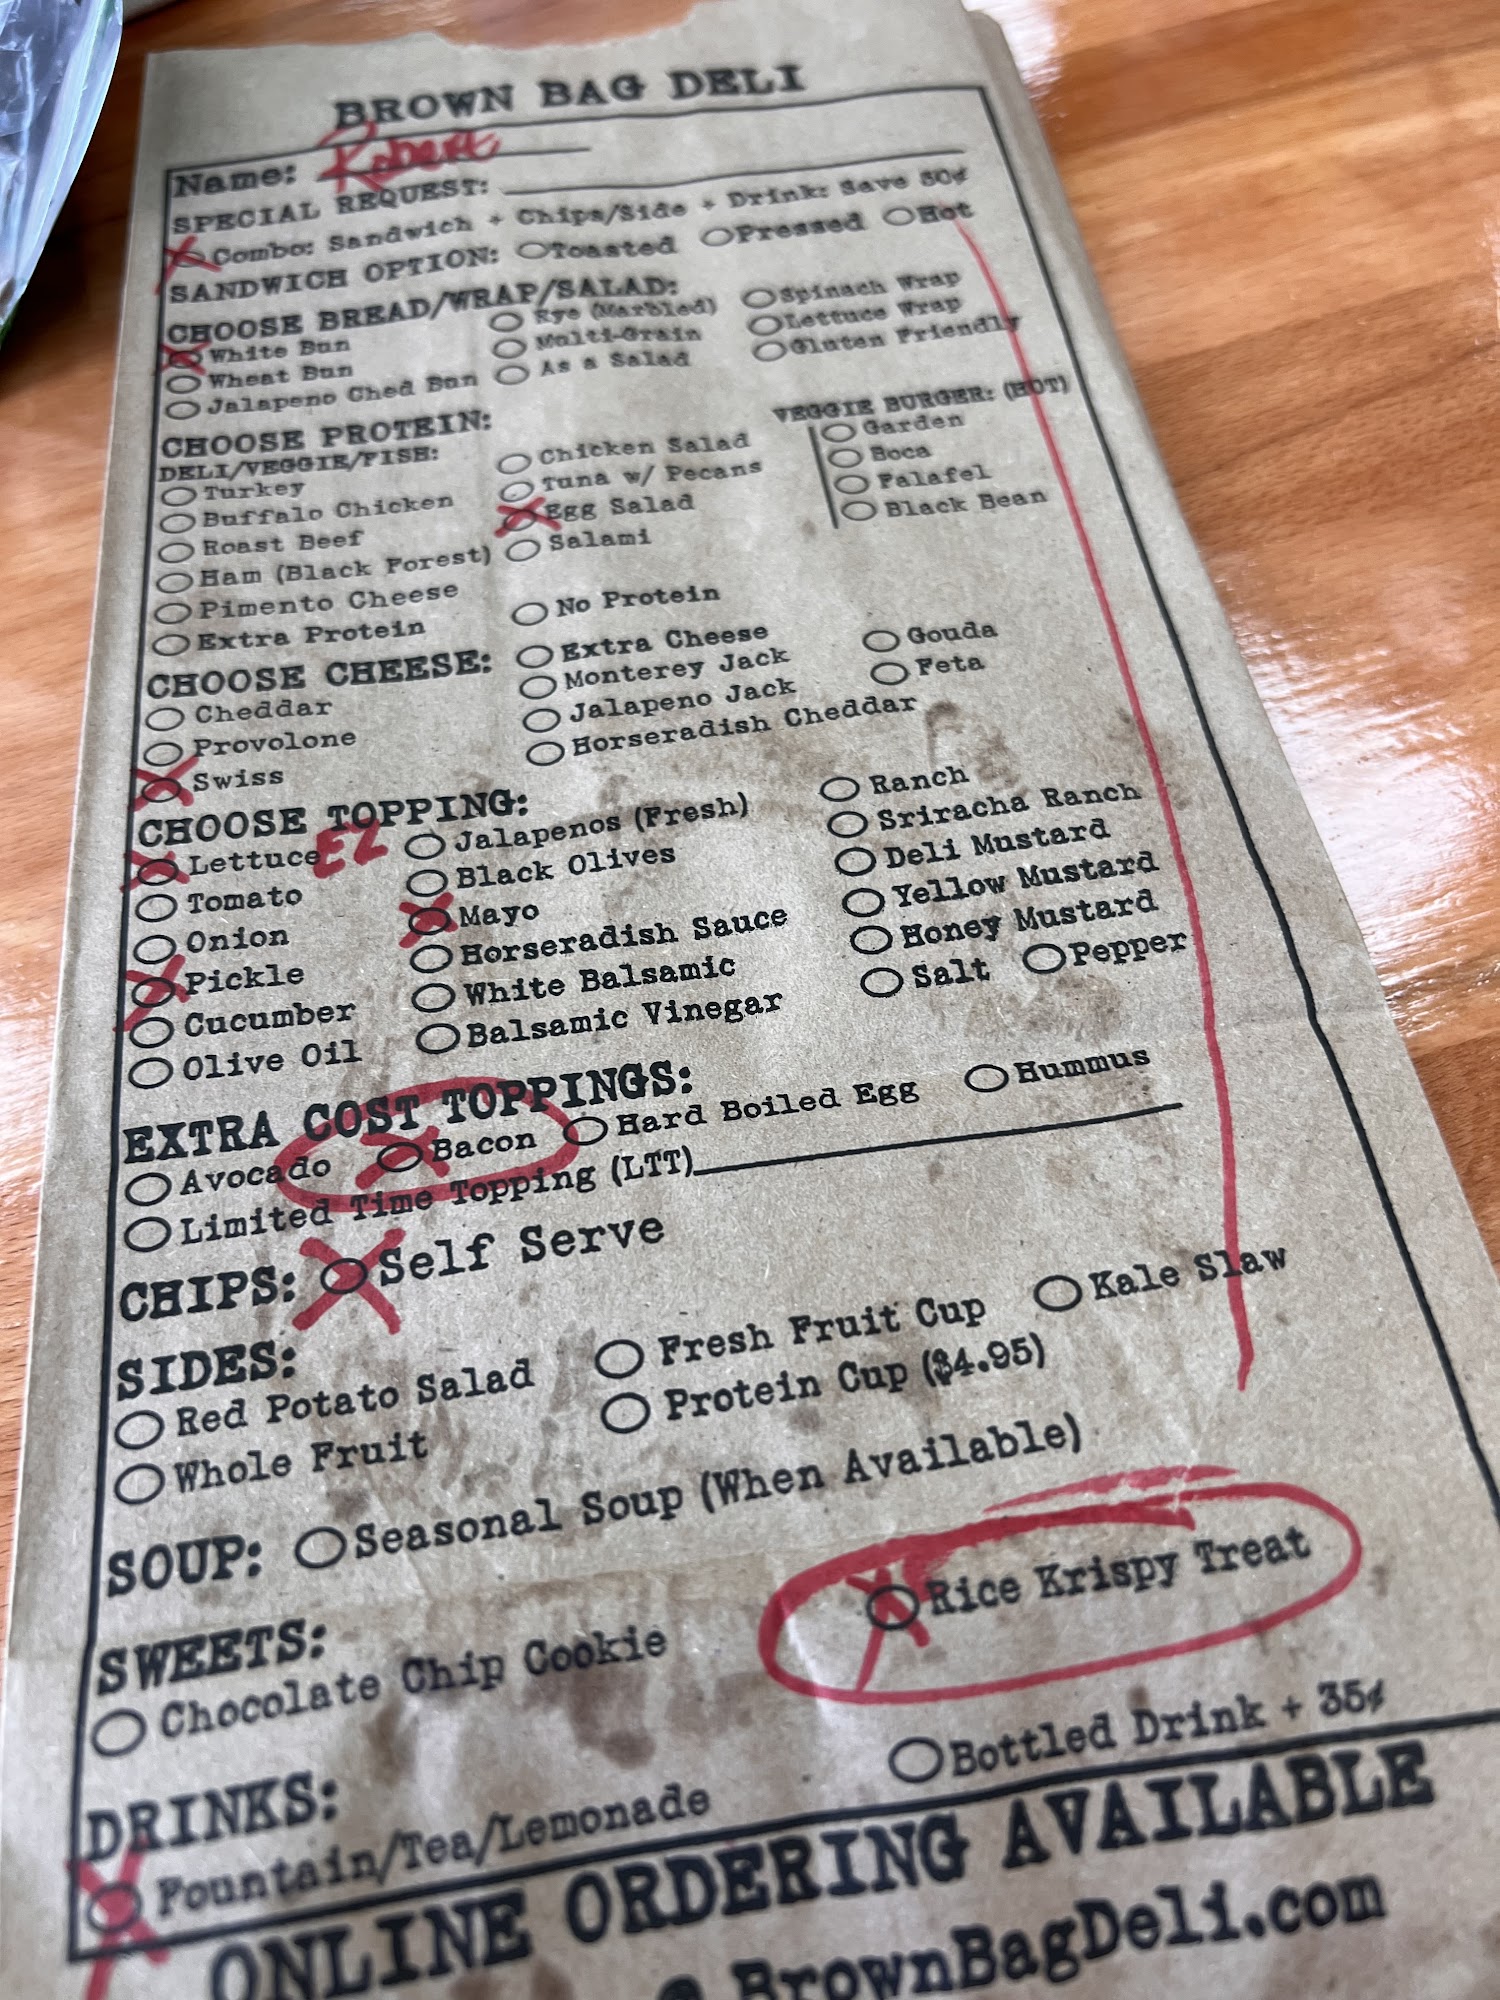 BROWN BAG DELI
Name: Robert
SPECIAL REQUEST:
Combo: Sandwich + Chips/Side + Drink: Save 50¢
SANDWICH OPTION: Toasted Pressed Hot
CHOOSE BREAD/WRAP/SALAD:
White Bun Rye (Marbled) Spinach Wrap
Wheat Bun Multi-Grain Lettuce Wrap
Jalapeno Ched Bun As a Salad Gluten Friendly
CHOOSE PROTEIN:
DELI/VEGGIE/FISH: VEGGIE BURGER: (HOT)
Turkey Chicken Salad Garden
Buffalo Chicken Tuna w/ Pecans Boca
Roast Beef Egg Salad Falafel
Ham (Black Forest) Salami Black Bean
Pimento Cheese
Extra Protein No Protein
CHOOSE CHEESE: Extra Cheese Gouda
Cheddar Monterey Jack Feta
Provolone Jalapeno Jack
Swiss Horseradish Cheddar
CHOOSE TOPPING:
Lettuce EZ Jalapenos (Fresh) Ranch
Tomato Black Olives Sriracha Ranch
Onion Mayo Deli Mustard
Pickle Horseradish Sauce Yellow Mustard
Cucumber White Balsamic Honey Mustard
Olive Oil Balsamic Vinegar Salt Pepper
EXTRA COST TOPPINGS:
Avocado Bacon Hard Boiled Egg Hummus
Limited Time Topping (LTT)
CHIPS: Self Serve
SIDES:
Red Potato Salad Fresh Fruit Cup Kale Slaw
Whole Fruit Protein Cup ($4.95)
SOUP: Seasonal Soup (When Available)
SWEETS:
Chocolate Chip Cookie Rice Krispy Treat
DRINKS:
Fountain/Tea/Lemonade Bottled Drink + 35¢
ONLINE ORDERING AVAILABLE
@ BrownBagDeli.com